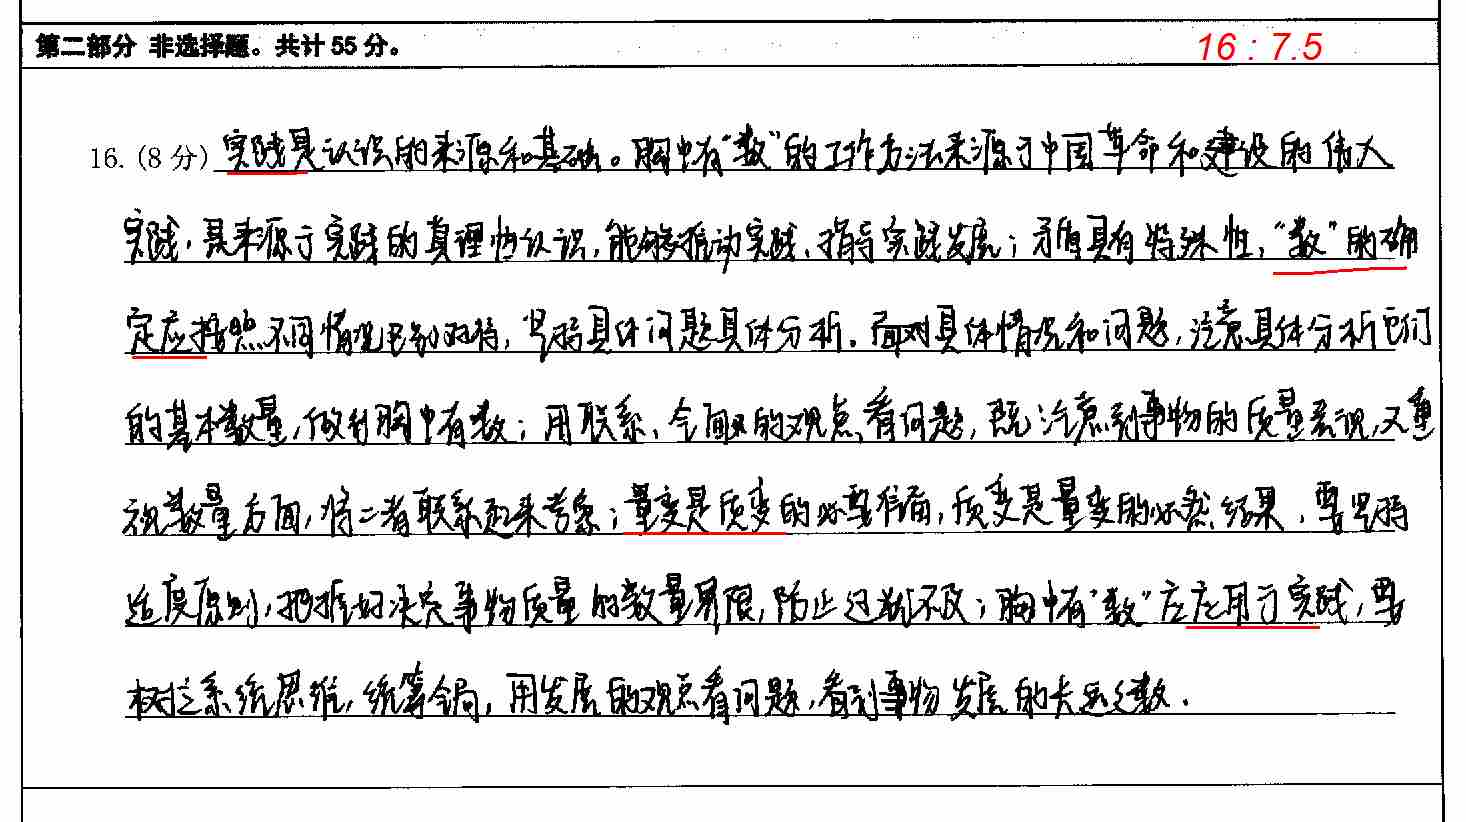 第二部分 非选择题。共计 55 分。
16 : 7.5
16. (8 分) 实践是认识的来源和基础。胸中有“数”的工作方法来源于中国革命和建设的伟大
实践,是来源于实践的真理性认识,能够推动实践、指导实践发展;矛盾具有特殊性,“数”的确
定应按照不同情况区别对待,坚持具体问题具体分析。面对具体情况和问题,注意具体分析它们
的基本数量,做到胸中有数;用联系、全面的观点看问题,既注意到事物的质量表现,又重
视数量方面,将二者联系起来考察;量变是质变的必要准备,质变是量变的必然结果,要坚持
适度原则,把握好决定事物质量的数量界限,防止过犹不及;胸中有“数”应应用于实践,要
树立系统思维,统筹全局,用发展的观点看问题,看到事物发展的长远之数.